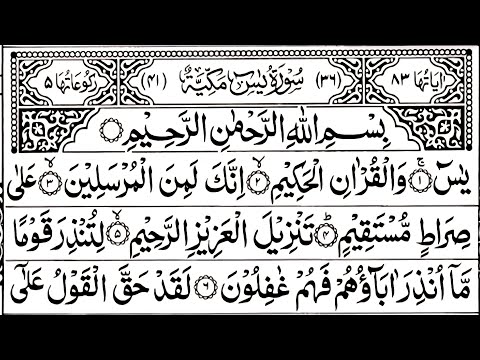 اٰیاتها ٨٣ (٣٦) سُوْرَةُ يٰسٓ مَكِّيَّةٌ (٤١) رکوعاتها ٥
بِسْمِ اللّٰهِ الرَّحْمٰنِ الرَّحِيْمِ ۝
يٰسٓ ۝١ وَالْقُرْاٰنِ الْحَكِيْمِ ۝٢ اِنَّكَ لَمِنَ الْمُرْسَلِيْنَ ۝٣ عَلٰى
صِرَاطٍ مُّسْتَقِيْمٍ ۝٤ تَنْزِيْلَ الْعَزِيْزِ الرَّحِيْمِ ۝٥ لِتُنْذِرَ قَوْمًا
مَّاۤ اُنْذِرَ اٰبَآؤُهُمْ فَهُمْ غٰفِلُوْنَ ۝٦ لَقَدْ حَقَّ الْقَوْلُ عَلٰۤى